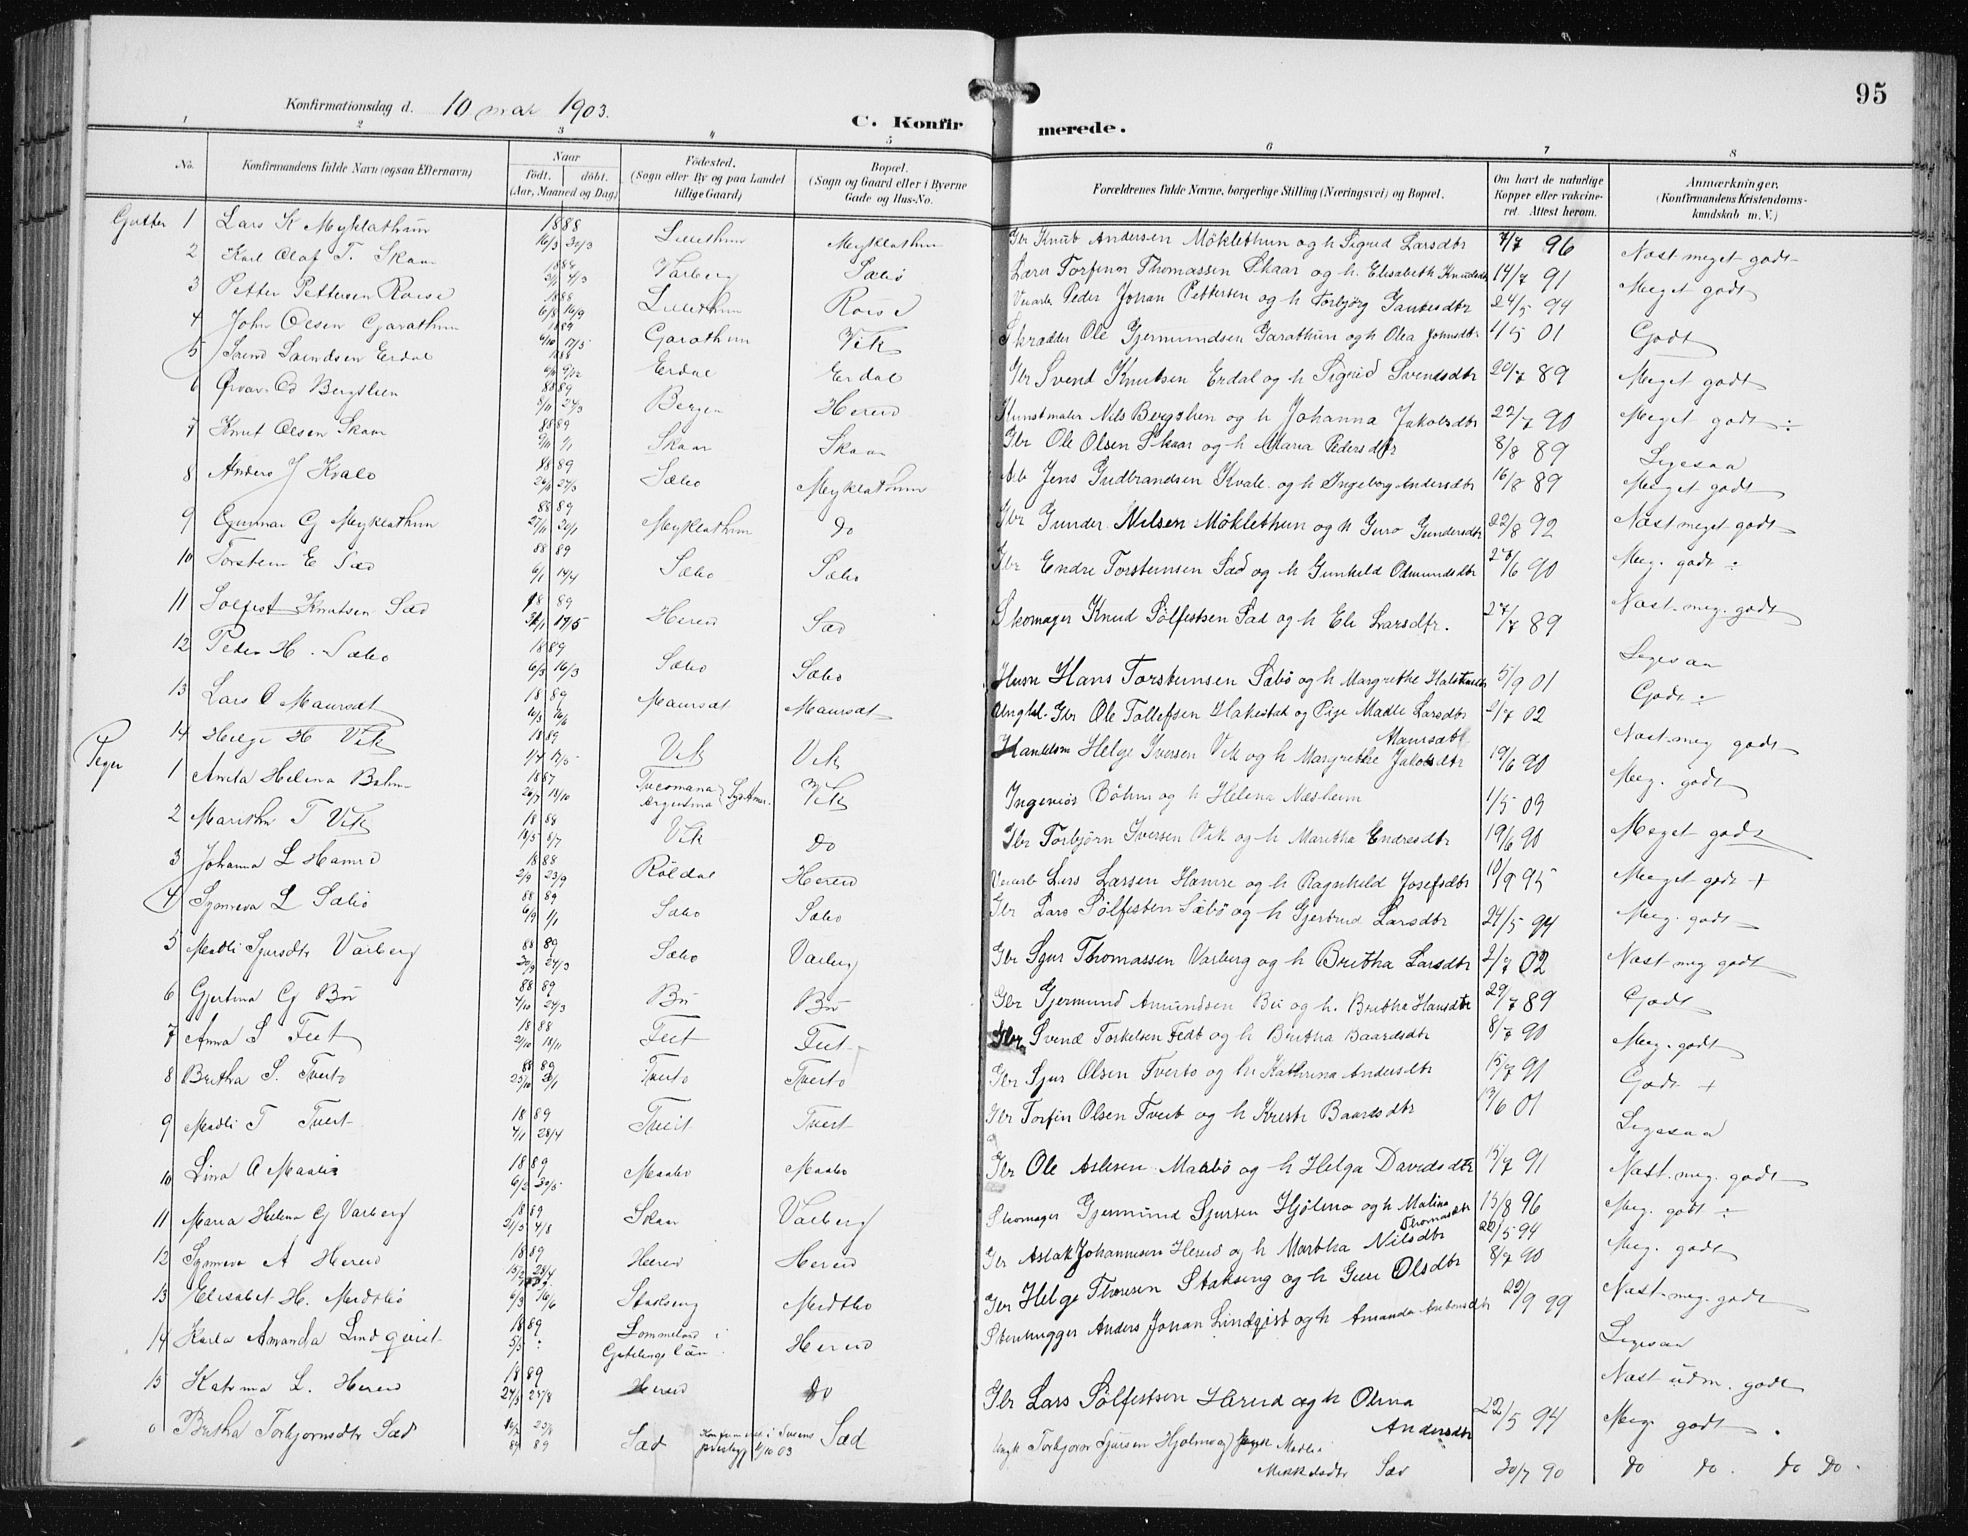 95
Konfirmationsdag d. 10 mai 1903.
C. Konfirmerede.
1 2 3 4 5 6 7 8
No. Konfirmandens fulde Navn (ogsaa Efternavn) Naar født. døbt. (Aar, Maaned og Dag) Fødested. (Sogn eller By og paa Landet tillige Gaard) Bopæl. (Sogn og Gaard eller i Byerne Gade og Hus-No. Forældrenes fulde Navne, borgerlige Stilling (Næringsvei) og Bopæl. Om havt de naturlige Kopper eller vakcineret. Attest herom. Anmærkninger. (Konfirmandens Kristendomskundskab m. V.)
Gutter 1 Lars K Myklathun 1888 16/3 Lillethun Myklathun Gbr Knut Andersen Möklethun og h Sigrid Larsdtr 7/7 96 Næst meget godt
2 Karl Olaf T. Skaar 1888 4/3 Varberg Sæbö Lærer Torfinn Thomassen Skaar og h. Elisabeth Knudsdtr 14/7 91 Meget godt
3 Petter Pettersen Roise 1888 6/8 16/9 Lillethun Roise Peder Johan Pettersen og h Torbjörg 24/5 94 Godt
4 John Olsen Garathun 1889 Garathun Vik Skrædder Ole Gjermundsen Garathun og h Olea Johnsdtr 1/5 01 Meget godt
5 Svend Svendsen Erdal 1888 Erdal Erdal Gbr Svend Knutsen Erdal og h Sigrid Svendsdtr 20/7 89 Meget godt ÷
6 Bergslien 88 89 8/11 24/3 Bergen Hereid Kunstmaler Nils Bergslien og h Johanna Jakobsdtr 22/7 90
7 Knut Olsen Skaar 88 89 1/1 Skaar Skaar Gbr Ole Olsen Skaar og h Maria Pedersdtr 8/8 89 Ligesaa
8 Anders J Kvale 88 89 Sæbo Myklathun Arb Jens Gudbrandsen Kvale og h Ingeborg Andersdtr 16/8 89 Meget godt
9 Gunnar G Myklathun 88 89 27/11 20/1 Myklathun do Gbr Gunder Nilsen Möklethun og h Guro Gundersdtr 22/8 92 Næst meget godt
10 Torstein E Sæd 88 89 6/1 14/4 Sæbo Sæbo Gbr Endre Torsteinsen Sæd og h Gunhild Odmundsdtr 27/6 90 Meg. godt ÷
11 Solfest Knutsen Sæd 18 89 19/5 Hereid Sæd Skomager Knud Sölfestsen Sæd og h Eli Larsdtr. 27/7 89 Næst meg. godt
12 Peder H. Sæbo 1889 6/3 16/3 Sæbo Sæbo Husm Hans Torsteinsen Sæbö og h Margrethe 5/9 01 Ligesaa
13 Lars O Maursæt 18 89 Maursæt Maursæt Ungkl. Gbr Ole Tollefsen Hakestad og Pige Madli Larsdtr Maursæt 2/7 02 Godt ÷
14 Helge H Vik 18 89 1/4 Vik Vik Handelsm Helge Iversen Vik og h Margrethe Jakobsdtr 19/6 90 Næst meg godt
Piger 1 Anita Helena Bøhm 1887 26/7 13/10 Tucomana Argentina Syd Amer. Vik Ingeniör Böhm og h Helena Næsheim 1/5 03 Meg. godt
2 Maritha T Vik 18 88 13/5 8/7 Vik do Gbr Torbjörn Iversen Vik og h Maritha Endresdtr 19/6 90 Meget godt
3 Johanna L Hamre 18 88 2/9 23/9 Röldal Hereid Lars Larsen Hamre og h Ragnhild Josefsdtr 10/9 95 Meget godt +
4 Synneva L Sæbö 88 89 6/9 1/1 Sæbo Sæbo Gbr Lars Sölfestsen Sæbö og h Gjertrud Larsdtr 24/5 94 Meg. godt
5 Madli Sjursdtr Varberg 88 89 30/9 24/3 Sæbo Varberg Gbr Sjur Thomassen Varberg og h Britha Larsdtr 2/7 02 Næst meg godt
6 Gjertina G Bu 88 89 4/10 24/3 Bu Bu Gbr Gjermund Amundsen Bu og h. Britha Hansdtr 29/7 89 Godt
7 Anna S Feet 18 88 2/10 11/11 Feet Feet Gbr Svend Torkelsen Fedt og h Britha Baardsdtr 8/7 90 Meg. godt
8 Britha S. Tveito 88 89 25/10 Tveito Tveito Gbr Sjur Olsen Tveito og h Kathrina Andersdtr 15/7 91 Godt +
9 Madli T Tveit 18 89 4/1 28/4 Tveit Tveit Gbr Torfin Olsen Tveit og h Kristi Baardsdtr 13/6 01 Ligesaa
10 Lina O Maabø 18 89 6/3 30/5 Maabo Maabo Gbr Ole Aslesen Maabö og h Helga Davidsdtr 15/7 91 Næst meg. godt
11 Maria Helena G Varberg 18 89 21/3 4/8 Skaar Varberg Skomager Gjermund Sjursen Hjölmo og h Malina Thomasdtr 13/8 96 Meg. godt ÷
12 Synneva A Hereid 18 89 Hereid Hereid Gbr Aslak Johannesen Hereid og h Martha Nilsdtr 22/5 94 Meg. godt
13 Elisabet H. Medtbö 6/3 Stakseng Medtbo Gbr Helge Thoresen Stakseng og h Guri Olsdtr 8/7 90 Næst meg. godt
14 Karla Amanda Lindqvist 18 89 5/5 Sommeland i Hereid Stenhugger Anders Johan Lindqist og h Amanda 22/9 99 Ligesaa
15 Katrina L. Hereid 18 89 24/3 25/8 Hereid do Gbr Lars Sölfestsen Hereid og h Olina Andersdtr 22/5 94 Næst udm. godt
Meg godt.
0 Britha Torbjornsdtr Sæd 89 89 Sæd 11/10 03 Sæd Ungk Torbjorn Sjursen Hjolmo og Madli Mikkelsdtr Sæd 30/7 90 do do. do do.